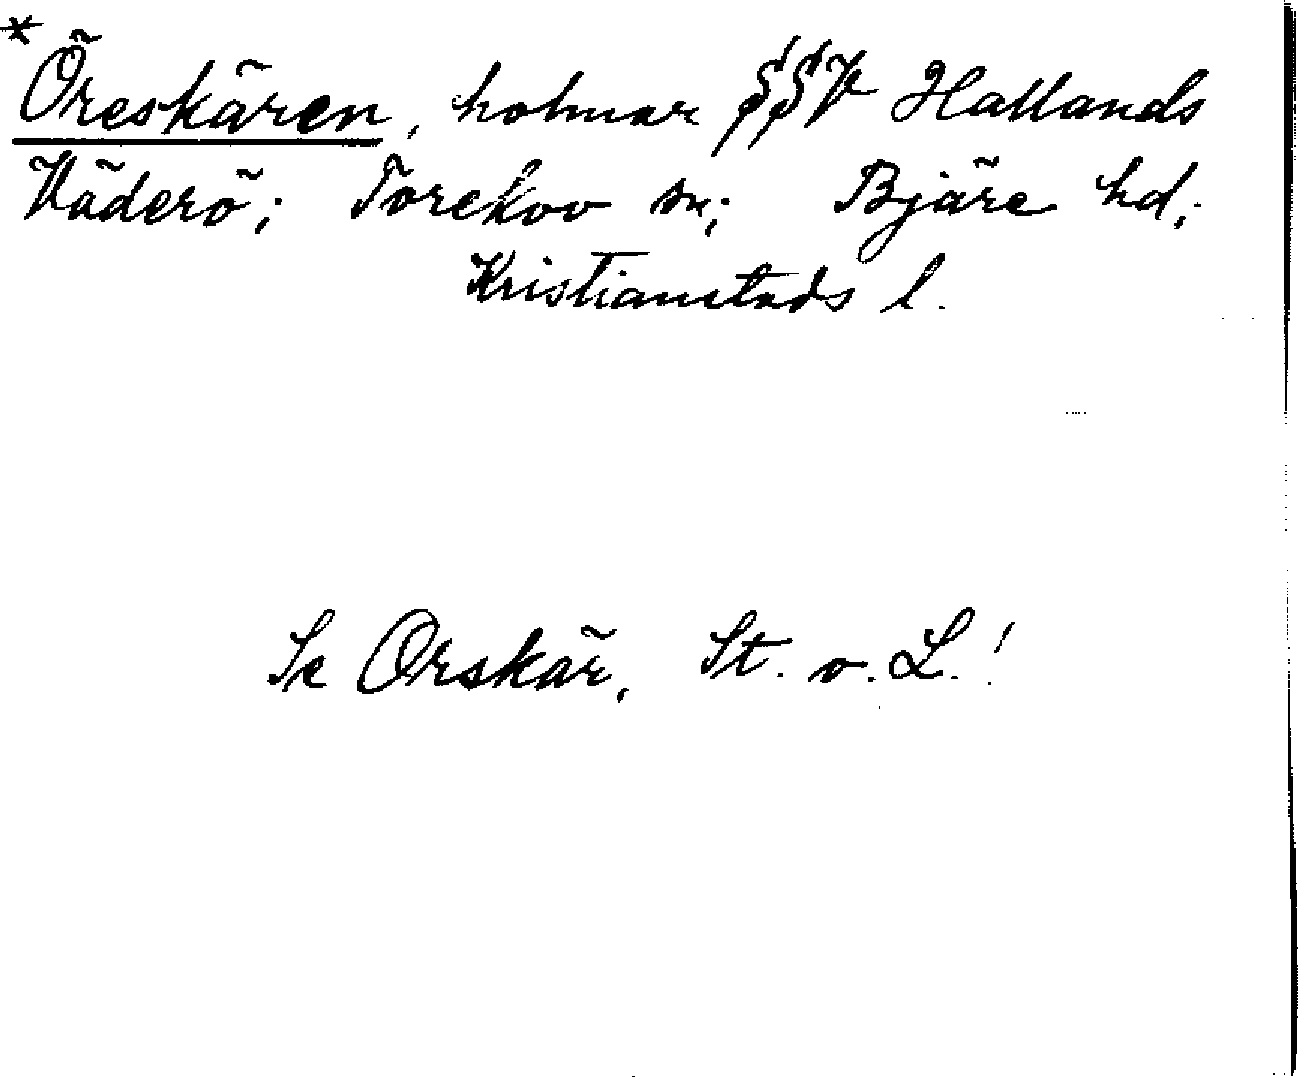 *
Öreskären, holmar SSV Hallands
Väderö; Torekov sn; Bjäre hd;
Kristianstads l.
Se Orskär, St. o. L.!